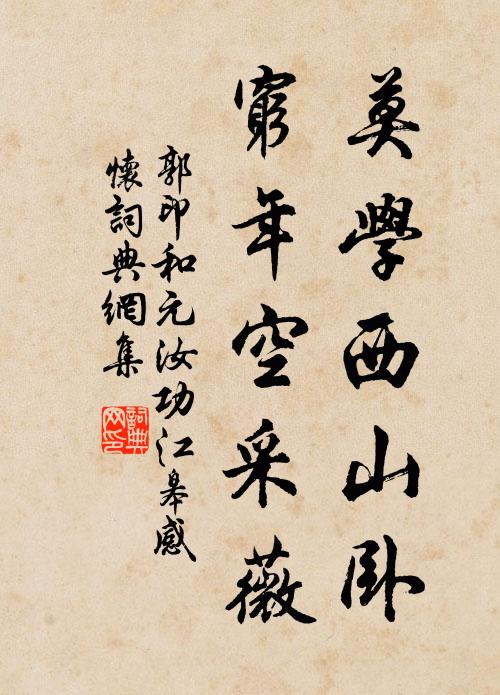 莫學西山卧
窮年空采薇
郭印和元汝功江皋感
懷詞典網集
詞典
网印